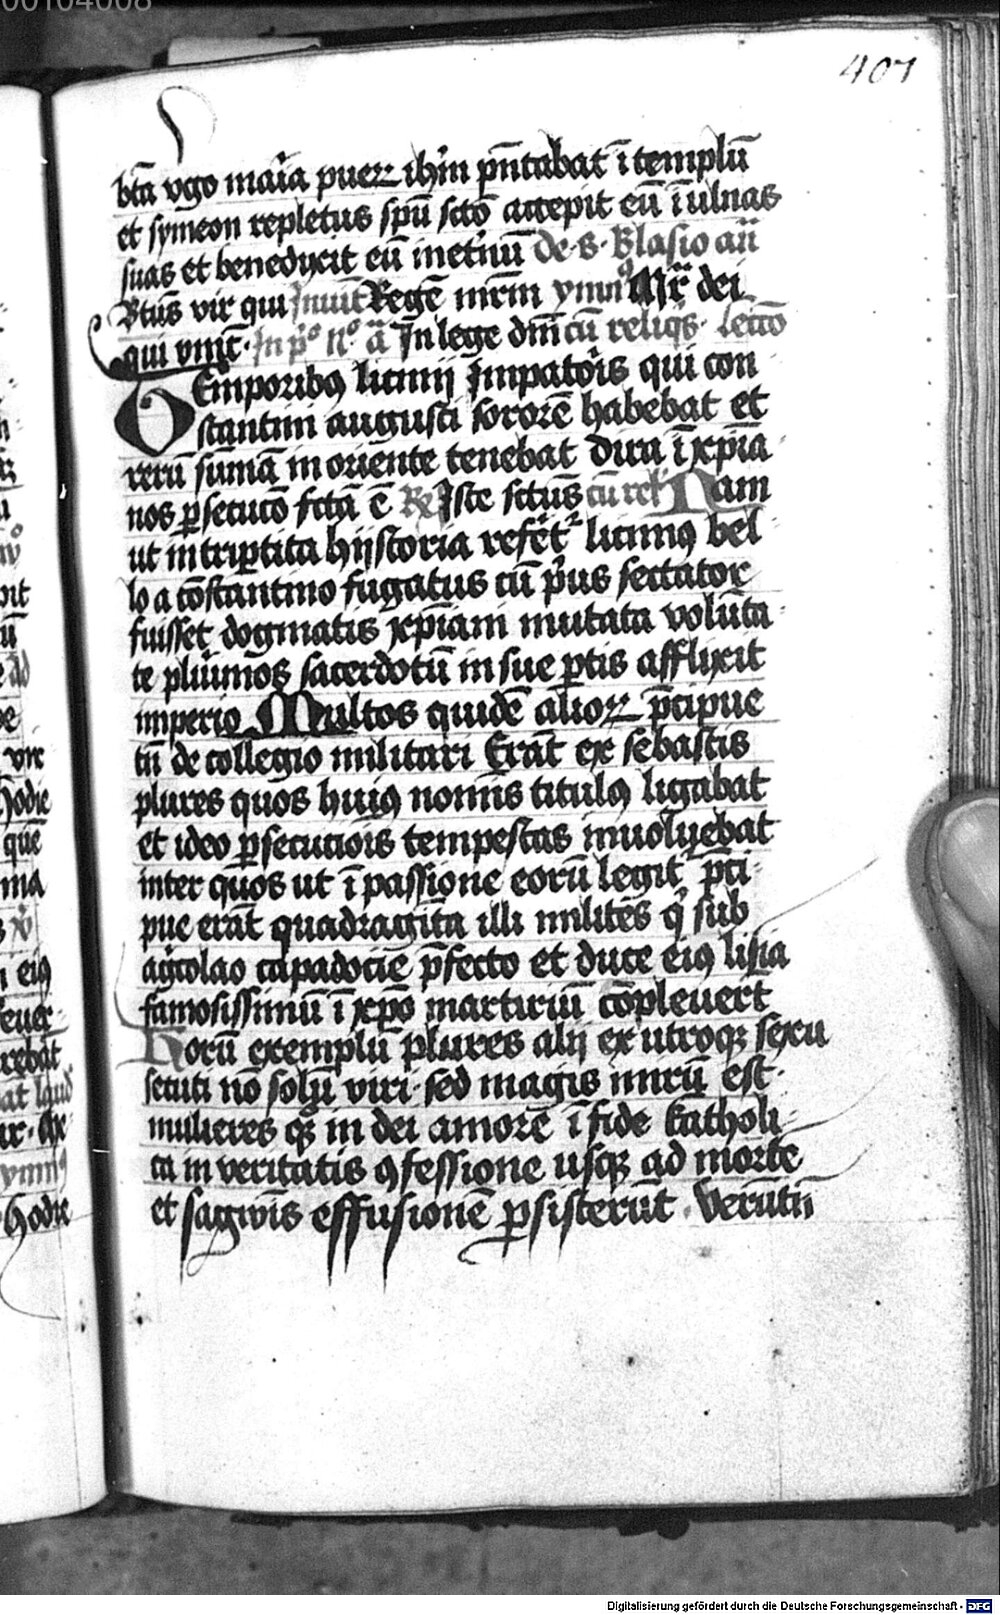 00104008
401
btā vgo maria puerꝝ ihm̄ pn̄tabat ī templū
et symeon repletus spū scō accepit eū ī ulnas
suas et benedixit eū inetnū de · s · Blasio añ
Btūs vir qui Inuit Regē mrm̄ ymnꝰ Mr̄ dei
qui vnic̄ · In pº nº ā In lege dnī cū reliqs · lectō
Temporibꝰ licinij Impatoris qui con
stantini augusti sororē habebat et
rerū sūmā in oriente tenebat dira ī xp̄ia
nos ꝑsecucō fctā ē R Iste sctūs cū rel Nam
ut in triꝑtita hijstoria refert̄ᷣ licinꝰ bel
lo a cōstantino fugatus cū pus sectator
fuisset dogmatis xp̄iani mutata volūta
te plurimos sacerdotū in sue ꝑtis afflixit
imperio Multos quidē alioꝝ p̄cipue
tn̄ de collegio militari Erāt ex sebastis
plures quos huiꝰ nomīs titulꝰ ligabat
et ideo ꝑsecuciōis tempestas inuoluebat
inter quos ut ī passione eorū legit᷑ p̄ci
pue erāt quadragīta illi milites q sub
agcolao capadocie p̄fecto et duce eiꝰ lisia
famosissimū ī xp̄o martiriū cōpleuert
Horū exemplū plures alij ex utroqꝫ sexu
secuti nō solū viri · sed magis mirū est ·
mulieres qꝫ in dei amorē ī fide katholi
ca in veritatis ꝯfessione usqꝫ ad morte
et sagwīs effusionē ꝑsisterūt · Verūtn̄
Digitalisierung gefördert durch die Deutsche Forschungsgemeinschaft - DFG